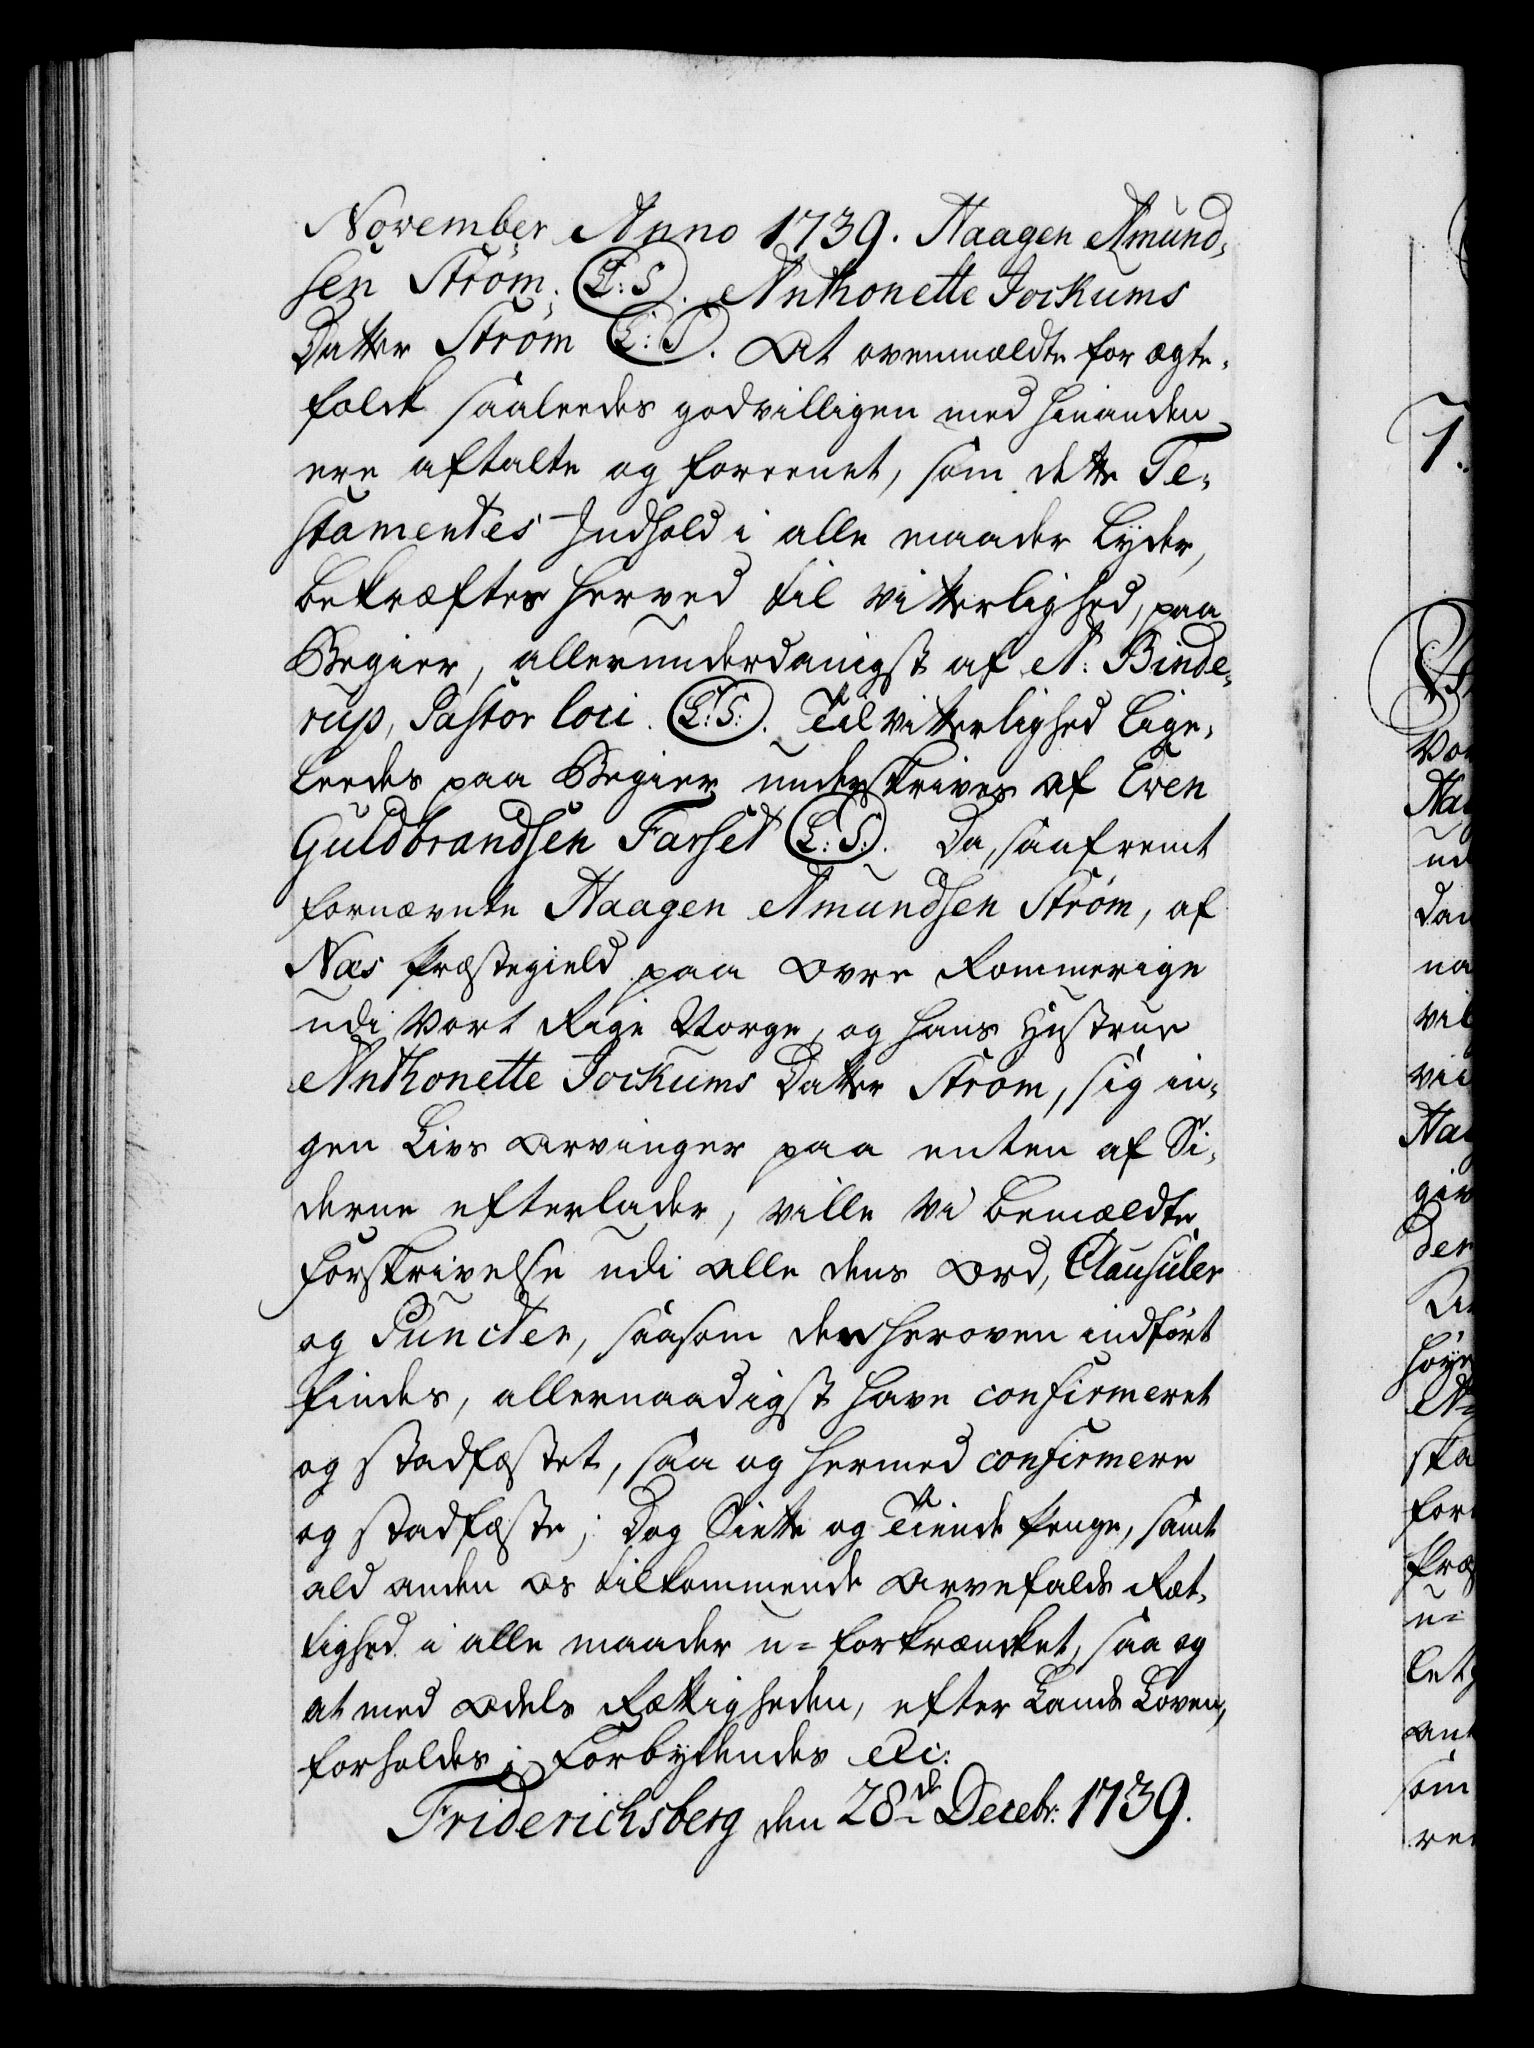 November Anno 1739. Haagen Amund-
sen Strøm. (L: S.). Anthonette Jockums
Datter Strøm (L: S.). At ovenmeldte for ægte-
folck saaleedes godvilligen med hinanden
ere aftalte og foreenet, som dette Te-
stamentes Indhold i alle maader lyder,
bekræftes herved til vitterlighed, paa
Begier, allerunderdanigst af N: Binde-
rup, Pastor loci. (L: S:). Til vitterlighed lige-
leedes paa Begier underskrives af Even
Guldbrandsen Farset (L: S:). Da, saafremt
fornævnte Haagen Amundsen Strøm, af
Næs Præstegield paa Øvre Rommerige
udi Vort Rige Norge, og hans Hustrue
Anthonette Jockums Datter Strøm, sig in-
gen Livs Arvinger paa enten af Si-
derne efterlader, ville Vi bemældte
Forskrivelse udi alle dens Ord, Clausuler
og Puncter, saasom den heroven indført
findes, allernaadigst have confirmeret
og stadfæstet, saa og hermed confirmere
og stadfæste; Dog Siette og Tiende Penge, samt
ald anden os tilkommende Arvefalds Ret-
tighed i alle maader u-forkræncket, saa og
at med Odels Rettigheden, efter Lands Loven,
forholdes; Forbydendes etc:
Friderichsberg den 28de Decebr: 1739.